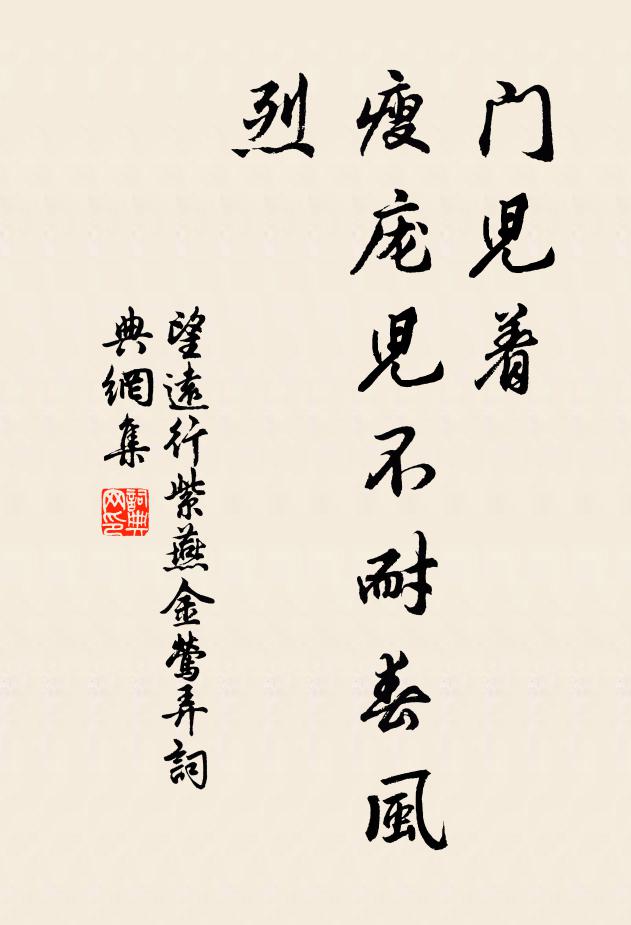 門兒着
瘦庞兒不耐春風
烈
望遠行紫燕金鶯弄詞
典網集
詞典
网印